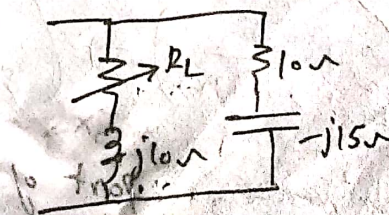 RL
10Ω
j10Ω
-j15Ω